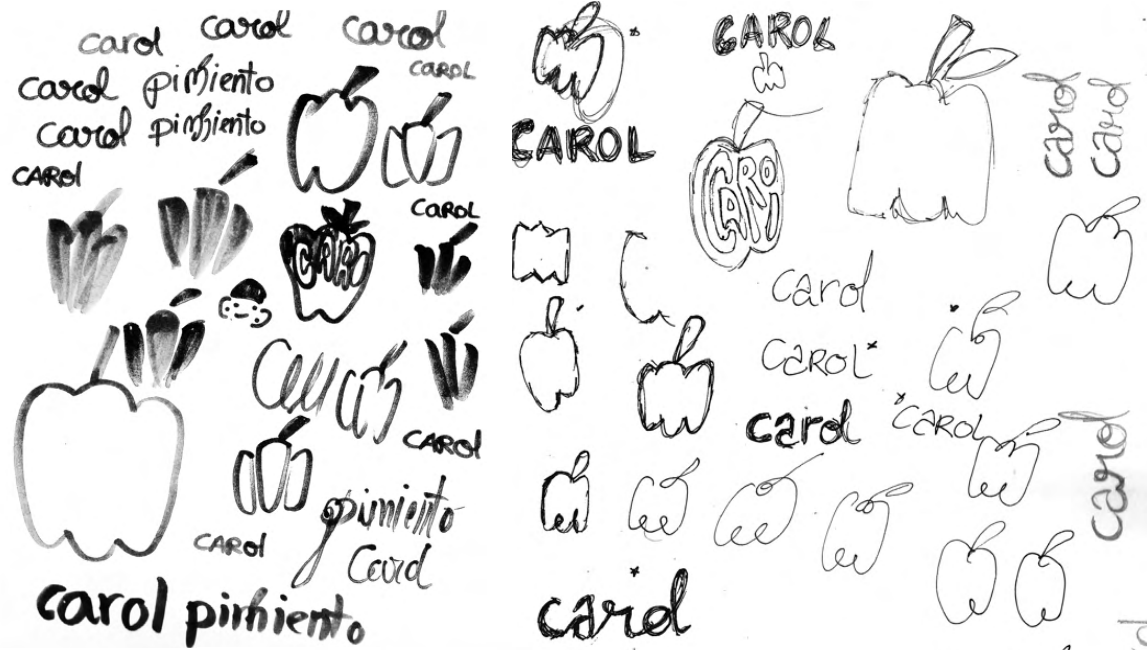 carol
carol
carol
carol pimiento
CAROL
carol pimiento
CAROl
CAROL
CAROL
CAROl
CAROl
pimiento
Carol
carol pimiento
CAROL
CAROL
CAROL
carol
CAROL
carol
CAROL
carol
carol
carol
carol
carol